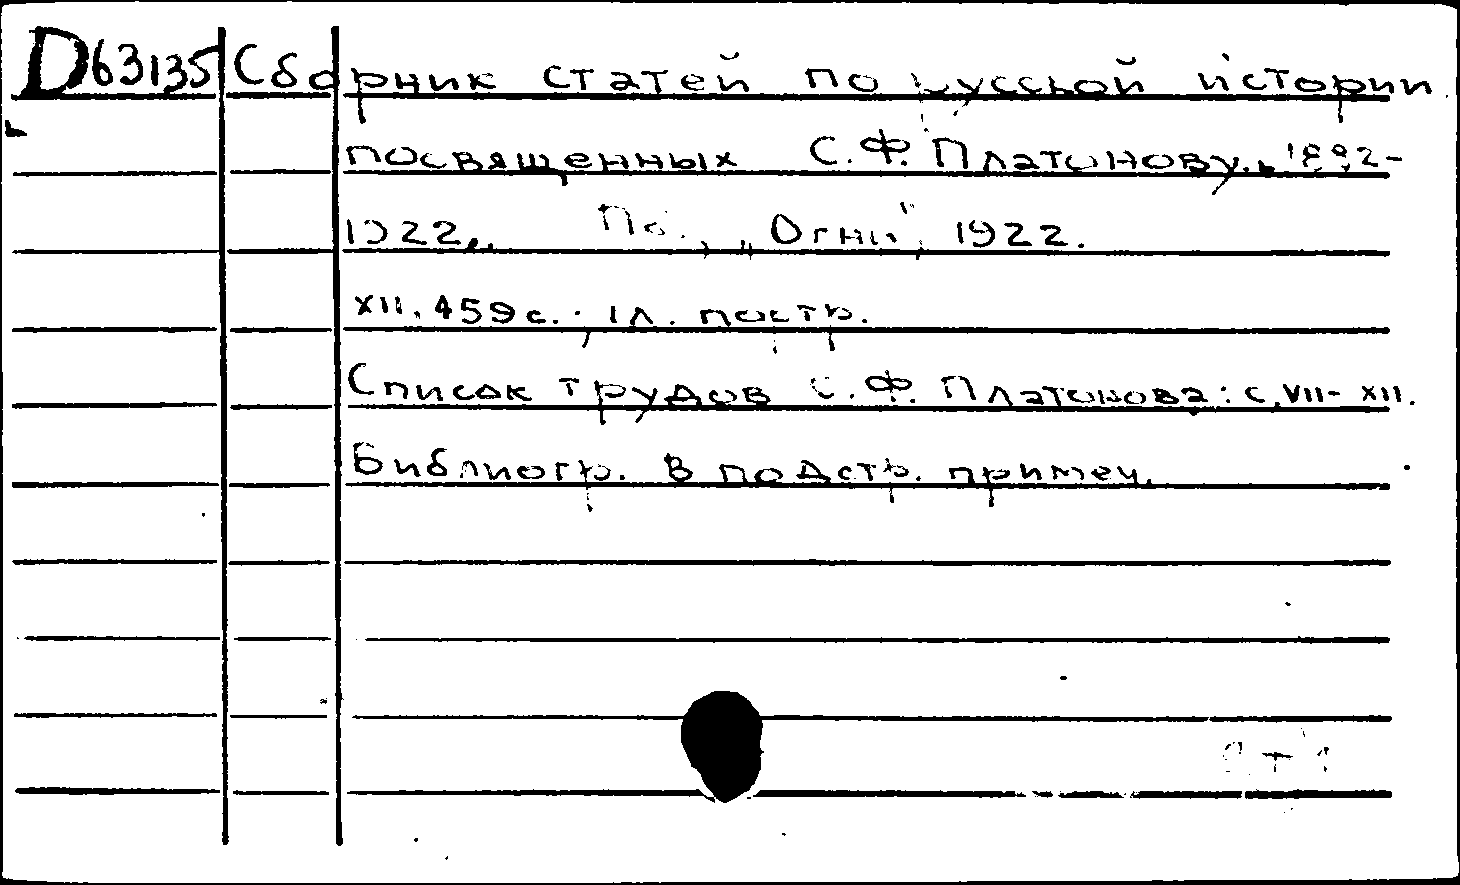 D63135 Сборник статей по русской истории
посвященных С.Ф. Платонову. 1892-
1922. Пб., „Огни", 1922.
XII, 459 с.; 1 л. портр.
Список трудов С.Ф. Платонова: с. VII-XII.
Библиогр. в подстр. примеч.